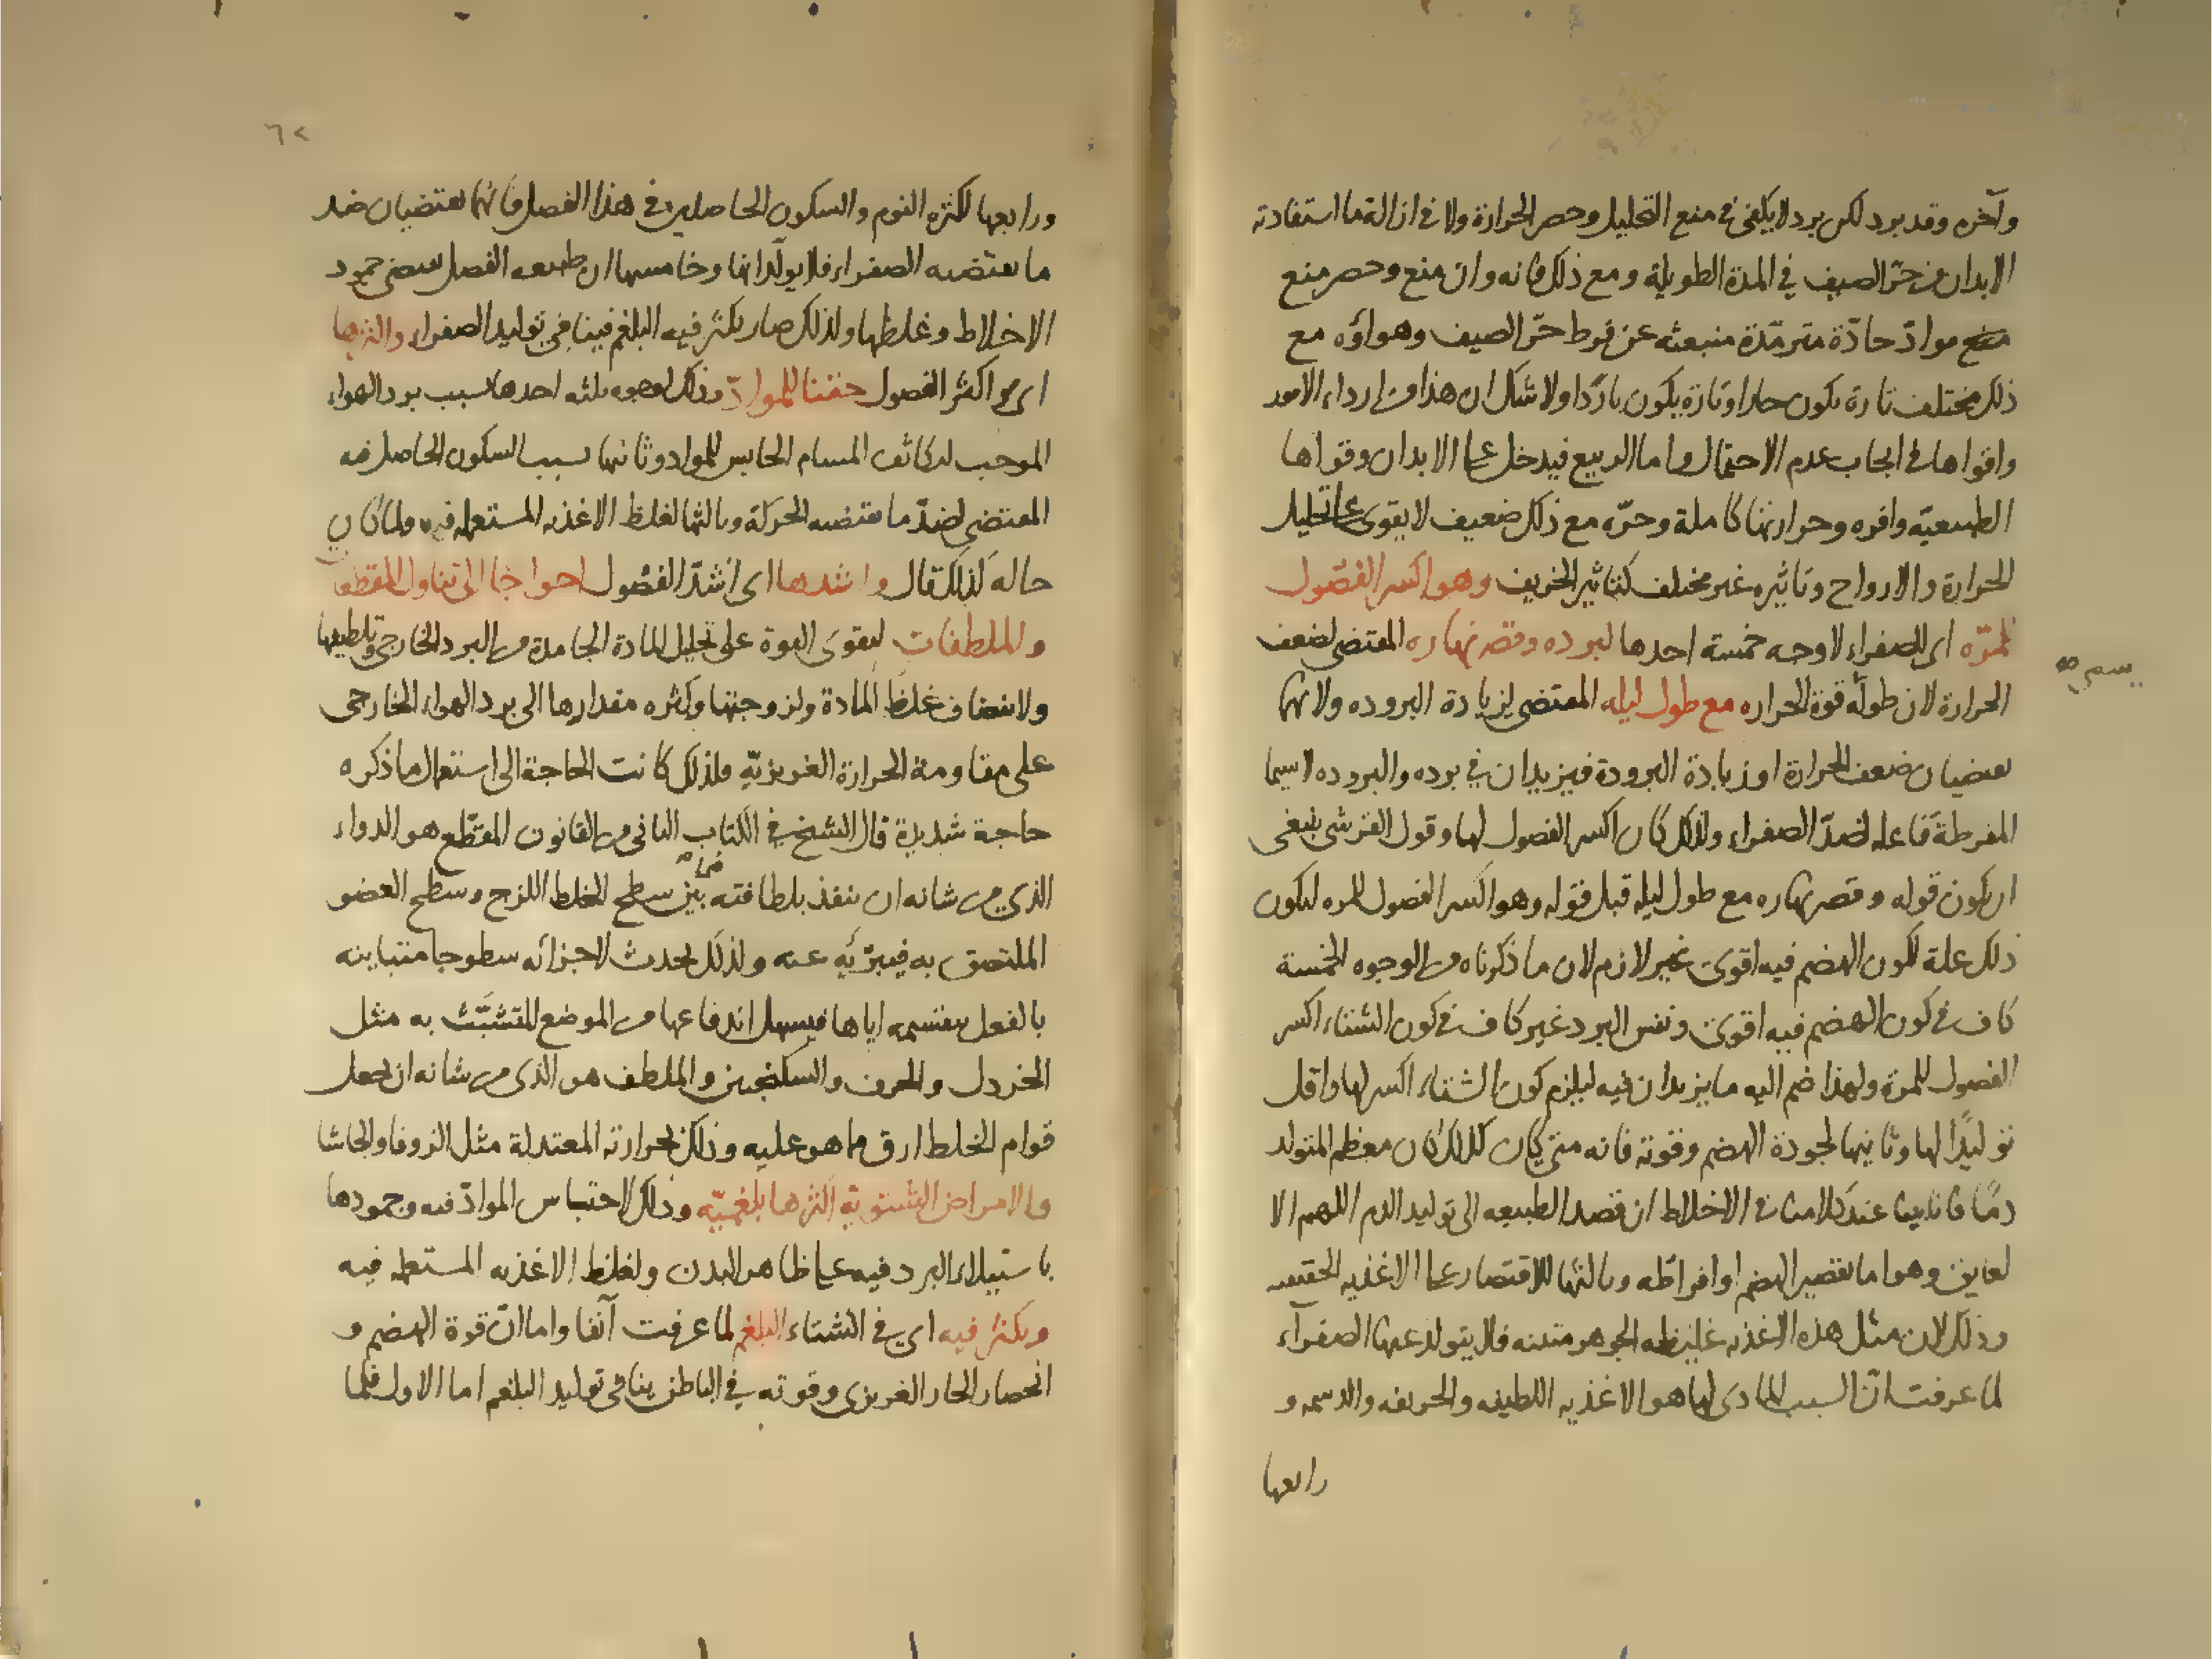 وآخره وقد برد لكن برد لا يكفى فى منع التحليل وحصر الحرارة ولا فى ازالة ما استفادته
الابدان من حرّ الصيف في المدة الطويلة ومع ذلك فانه وان منع وحصر منع
مع موادّ حادّة مترمّدة منبعثه عن فرط حرّ الصيف وهواؤه مع
ذلك مختلف تارة يكون حارا وتارة يكون باردًا ولا شك ان هذا من ارداء الامور
واقواها فى ايجاب عدم الاحتمال واما الربيع فيدخل على الابدان وقواها
الطبيعيّه وافره وحرارتها كاملة وحرّه مع ذلك ضعيف لا يقوى على تحليل
الحرارة والارواح وتاثيره غير مختلف كتاثير الخريف وهو اكسر الفصول
للمرّه اى للصفراء لاوجه خمسة احدها لبرده وقصر نهاره المقتضى لضعف
يسمى
الحرارة لان طوله قوة الحراره مع طول ليله المقتضى لزيادة البروده ولانهما
يقتضيان ضعف الحرارة او زيادة البرودة فيزيدان في برده والبروده لاسيما
المفرطة فاعله لضدّ الصفراء ولذلك كان اكسر الفصول لها وقول القرشى ينبغى
ان يكون قوله وقصر نهاره مع طول ليله قبل قوله وهو اكسر الفصول للمره ليكون
ذلك علة لكون الهضم فيه اقوى غير لازم لان ما ذكرناه من الوجوه الخمسة
كاف فى كون الهضم فيه اقوى ونفس البرد غير كاف فى كون الشتاء اكسر
الفصول للمرة ولهذا ضم اليه ما يزيدان فيه ليلزم كون الشتاء اكسر لها واقل
توليدًا لها وثانيها لجودة الهضم وقوته فانه متى كان كذلك كان معظم المتولد
دمًا فانا بينا عند كلامنا فى الاخلاط ان قصد الطبيعه الى توليد الدم اللهم الا
لعايق وهو اما تقصير الهضم او افراطه وثالثها للاقتصار على الاغذيه
وذلك لان مثل هذه الاغذيه غليظه الجوهر متينه فلا يتولد عنها الصفرآء
لما عرفت انّ السبب المادى لها هو الاغذيه اللطيفه والحريفه والدسمه و
رابعها
٦٢
ورابعها لكثره النوم والسكون الحاصلين فى هذا الفصل فانهما يقتضيان ضد
ما يقتضيه الصفراء فلا يولّدانها وخامسها ان طبيعه الفصل يقتضى جمود
الاخلاط وغلظها ولذلك صار يكثر فيه البلغم فينافى توليد الصفراء واكثرها
اى اكثر الفصول حقنا للموادّ وذلك لوجوه ثلثه احدها بسبب برد الهواء
الموجب لتكاثف المسام الحابس للمواد وثانيها بسبب السكون الحاصل فيه
المقتضى لضدّ ما يقتضيه الحركة وثالثها لغلظ الاغذيه المستعمله فيه ولما كان
حاله كذلك قال واشدها اى اشدّ الفصول احواجا الى تناول المقطعات
والملطفات ليقوى القوة على تحليل المادة الجامدة من البرد الخارجى وتلطيفها
ولانضاف غلظ المادة ولزوجتها وكثره مقدارها الى برد الهواء الخارجى
على مقاومة الحرارة الغريزيّه فلذلك كانت الحاجة الى استعمال ما ذكره
حاجة شديدة قال الشيخ في الكتاب الثانى من القانون المقطّع هو الدواء
الذي من شانه ان ينفذ بلطافته بين سطح الخلط اللزج وسطح العضو
الملتصق به فيبرّئه عنه ولذلك يحدث لاجزائه سطوحا متباينه
بالفعل بتقسيمه اياها فيسهل اندفاعها من الموضع المتشبَّث به مثل
الخردل والحرف والسكنجبين والملطف هو الذى من شانه ان يجعل
قوام الخلط ارق مما هو عليه وذلك بحرارته المعتدلة مثل الزوفا والحاشا
والامراض الشتويّة اكثرها بلغميّه وذلك لاحتباس الموادّ فيه وجمودها
باستيلاء البرد فيه على ظاهر البدن ولغلظ الاغذيه المستعمله فيه
ويكثر فيه اى فى الشتاء البلغم لما عرفت آنفا واما انّ قوة الهضم و
انحصار الحار الغريزى وقوته في الباطن ينافى توليد البلغم اما الاول فلما